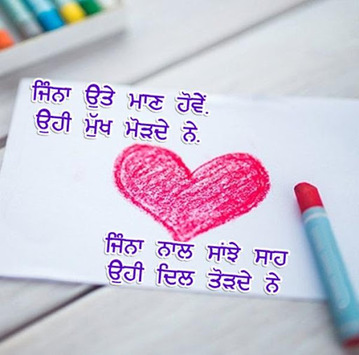 ਜਿੰਨਾ ਉਤੇ ਮਾਣ ਹੋਵੇਂ.
ਉਹੀ ਮੁੱਖ ਮੋੜਦੇ ਨੇ.
ਜਿੰਨਾ ਨਾਲ ਸਾਂਝੇ ਸਾਹ
ਉਹੀ ਦਿਲ ਤੋੜਦੇ ਨੇ